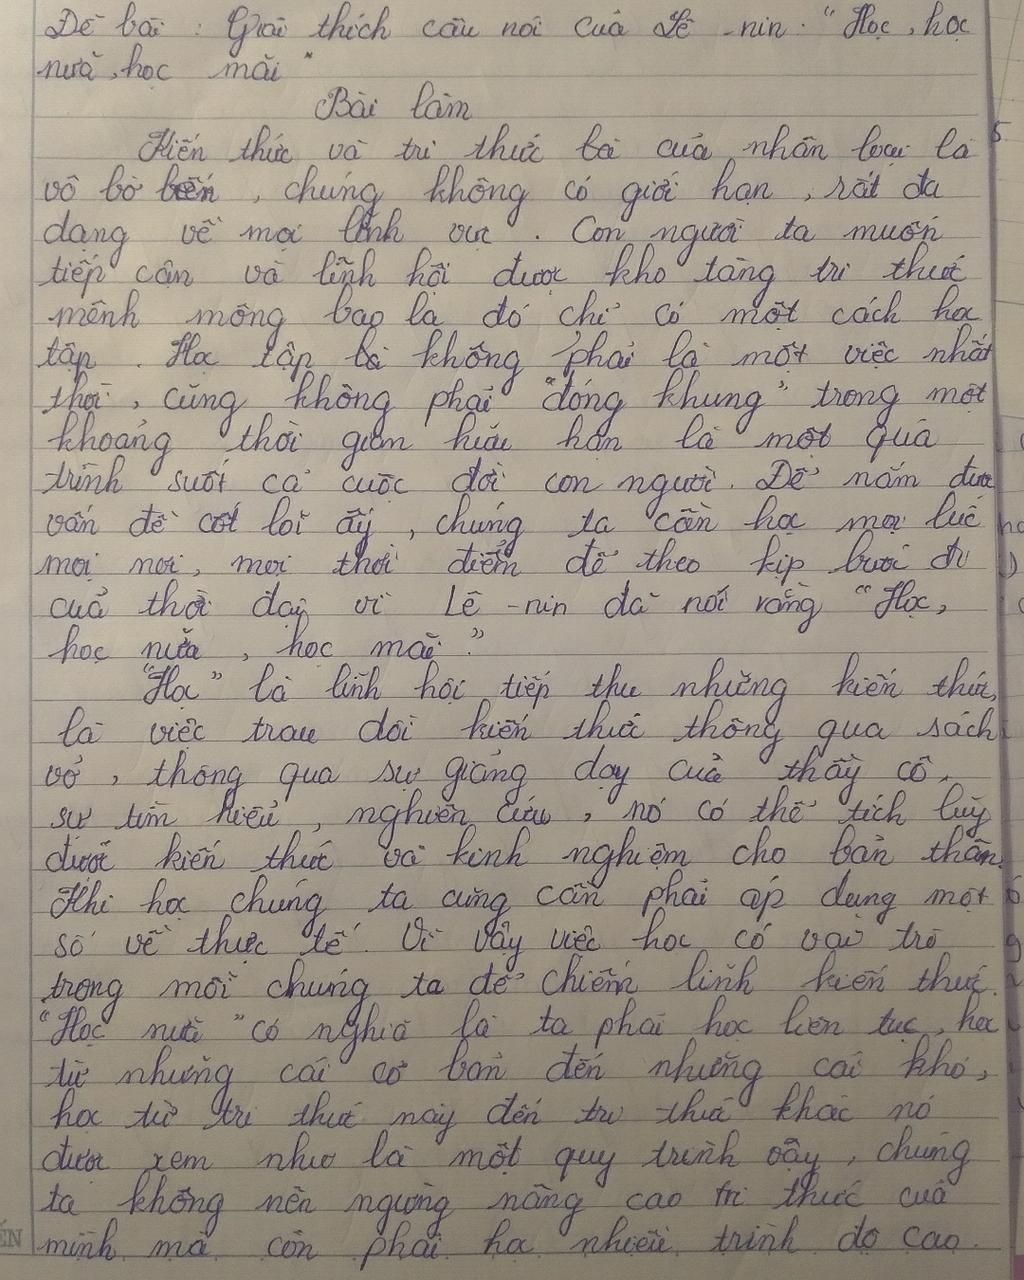 Đề bài : Giải thích câu nói của Lê -nin : " Học , học
nữa , học mãi "
Bài làm
Kiến thức và tri thức là của nhân loại là
vô bờ bến , chúng không có giới hạn , rất đa
dạng về mọi lĩnh vực . Con người ta muốn
tiếp cận và lĩnh hội được kho tàng tri thức
mênh mông bao la đó chỉ có một cách học
tập . Học tập là không phải là một việc nhất
thời , cũng không phải "đóng khung" trong một
khoảng thời gian hữu hạn là một quá
trình suốt cả cuộc đời con người . Để nắm được
vấn đề cốt lõi ấy , chúng ta cần học mọi lúc
mọi nơi , mọi thời điểm để theo kịp bước đi
của thời đại vì Lê -nin đã nói rằng " Học ,
học nữa , học mãi "
"Học" là lĩnh hội tiếp thu những kiến thức,
là việc trau dồi kiến thức thông qua sách
vở , thông qua sự giảng dạy của thầy cô ,
sự tìm hiểu , nghiên cứu , nó có thể tích lũy
được kiến thức và kinh nghiệm cho bản thân.
Khi học chúng ta cũng cần phải áp dụng một
số về thực tế . Vì vậy việc học có vai trò
trong mỗi chúng ta để chiếm lĩnh kiến thức .
"Học nữa " có nghĩa là ta phải học liên tục , học
từ những cái cơ bản đến những cái khó ,
học từ tri thức này đến tri thức khác nó
được xem như là một quy trình vậy , chúng
ta không nên ngưng nâng cao tri thức của
mình mà còn phải học nhiều trình độ cao .